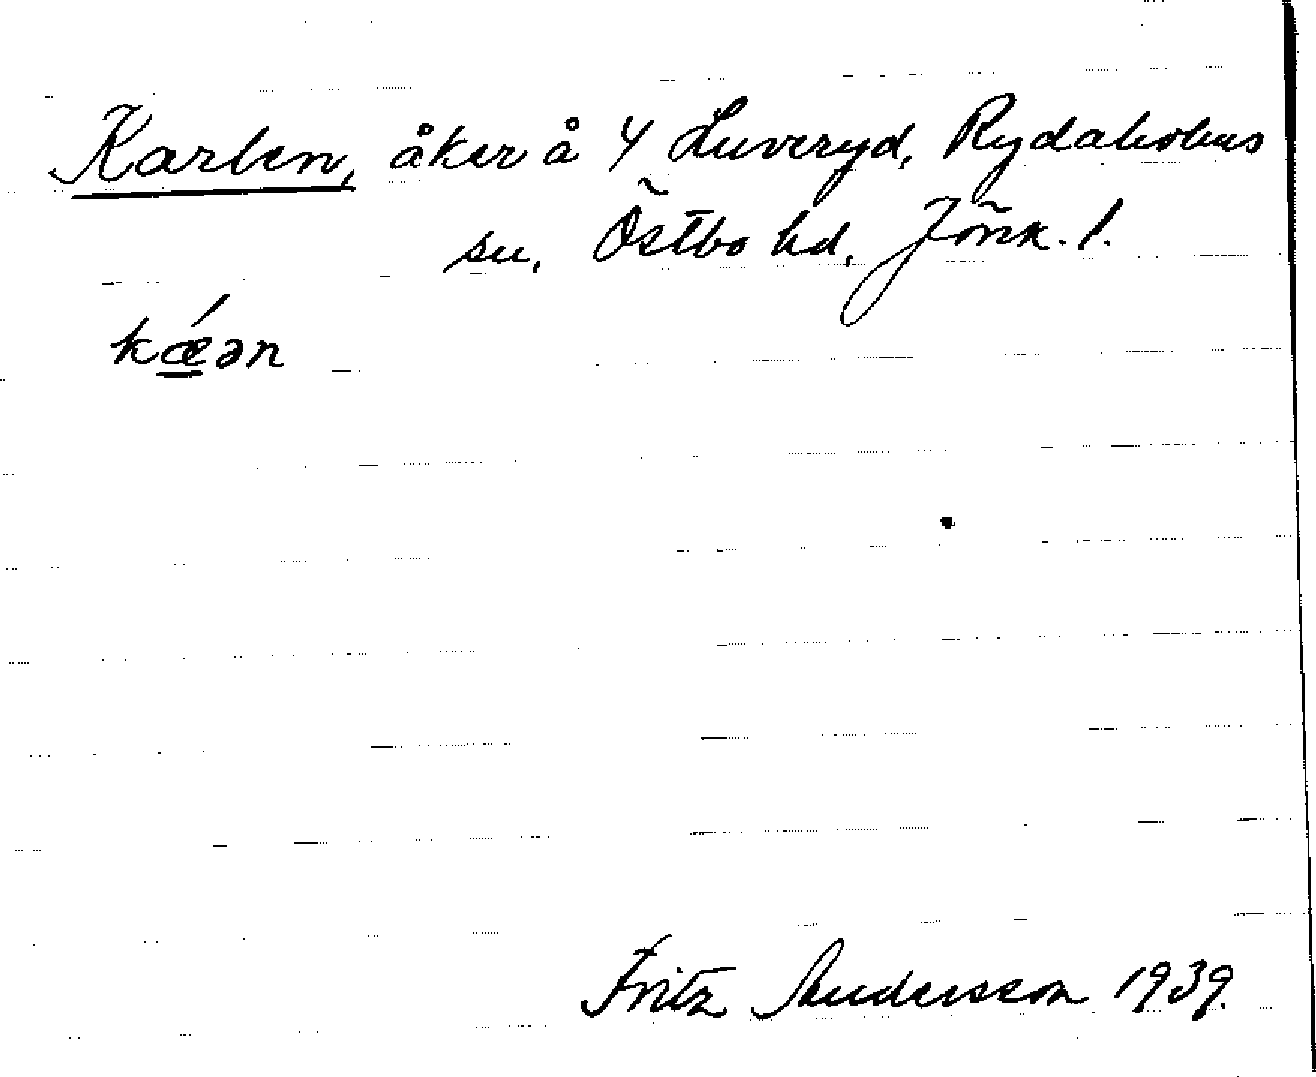 Karlen, åker å 4 Luveryd, Rydaholms
sn, Östbo hd, Jönk. l.
kǽən
Fritz Andersson 1939.